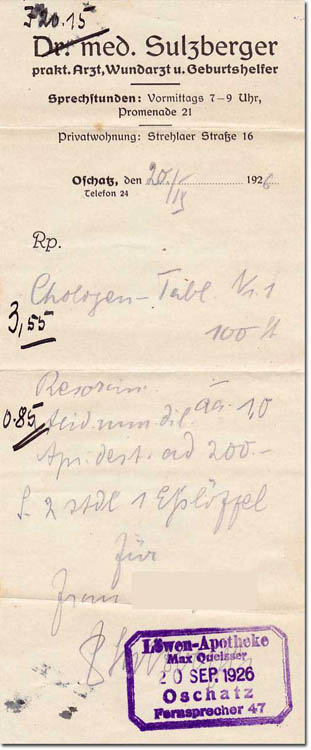 720.15
Dr. med. Sulzberger
prakt. Arzt, Wundarzt u. Geburtshelfer
Sprechstunden: Vormittags 7–9 Uhr,
Promenade 21
Privatwohnung: Strehlaer Straße 16
Oschatz, den 20/IX 1926
Telefon 24
Rp.
Chologen-Tabl. Nr. 1
3,55
100 St
Resorcin
0.85
Acid. mur. dil. aa 1,0
Aqu. dest. ad 200.-
S. 2 stdl 1 Eßlöffel
für
Frau
Löwen-Apotheke
Max Queisser
20 SEP. 1926
Oschatz
Fernsprecher 47